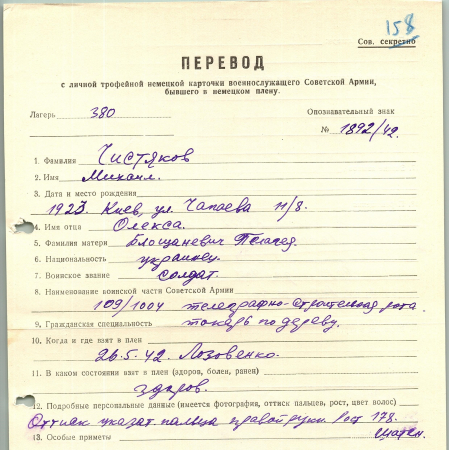 158
Сов. секретно
ПЕРЕВОД
с личной трофейной немецкой карточки военнослужащего Советской Армии,
бывшего в немецком плену.
Лагерь 380
Опознавательный знак
№ 1892/42.
1. Фамилия Чистяков
2. Имя Михаил.
3. Дата и место рождения
1923. Киев, ул. Чапаева 11/8.
4. Имя отца Олекса.
5. Фамилия матери Блощаневич
6. Национальность украинец.
7. Воинское звание солдат.
8. Наименование воинской части Советской Армии
109/1004 телеграфно-строительная рота
9. Гражданская специальность токарь по дереву.
10. Когда и где взят в плен
26.5.42. Лозовенко.
11. В каком состоянии взят в плен (здоров, болен, ранен)
здоров.
12. Подробные персональные данные (имеется фотография, оттиск пальцев, рост, цвет волос)
Оттиск указат. пальца правой руки. Рост 178.
13. Особые приметы шатен.